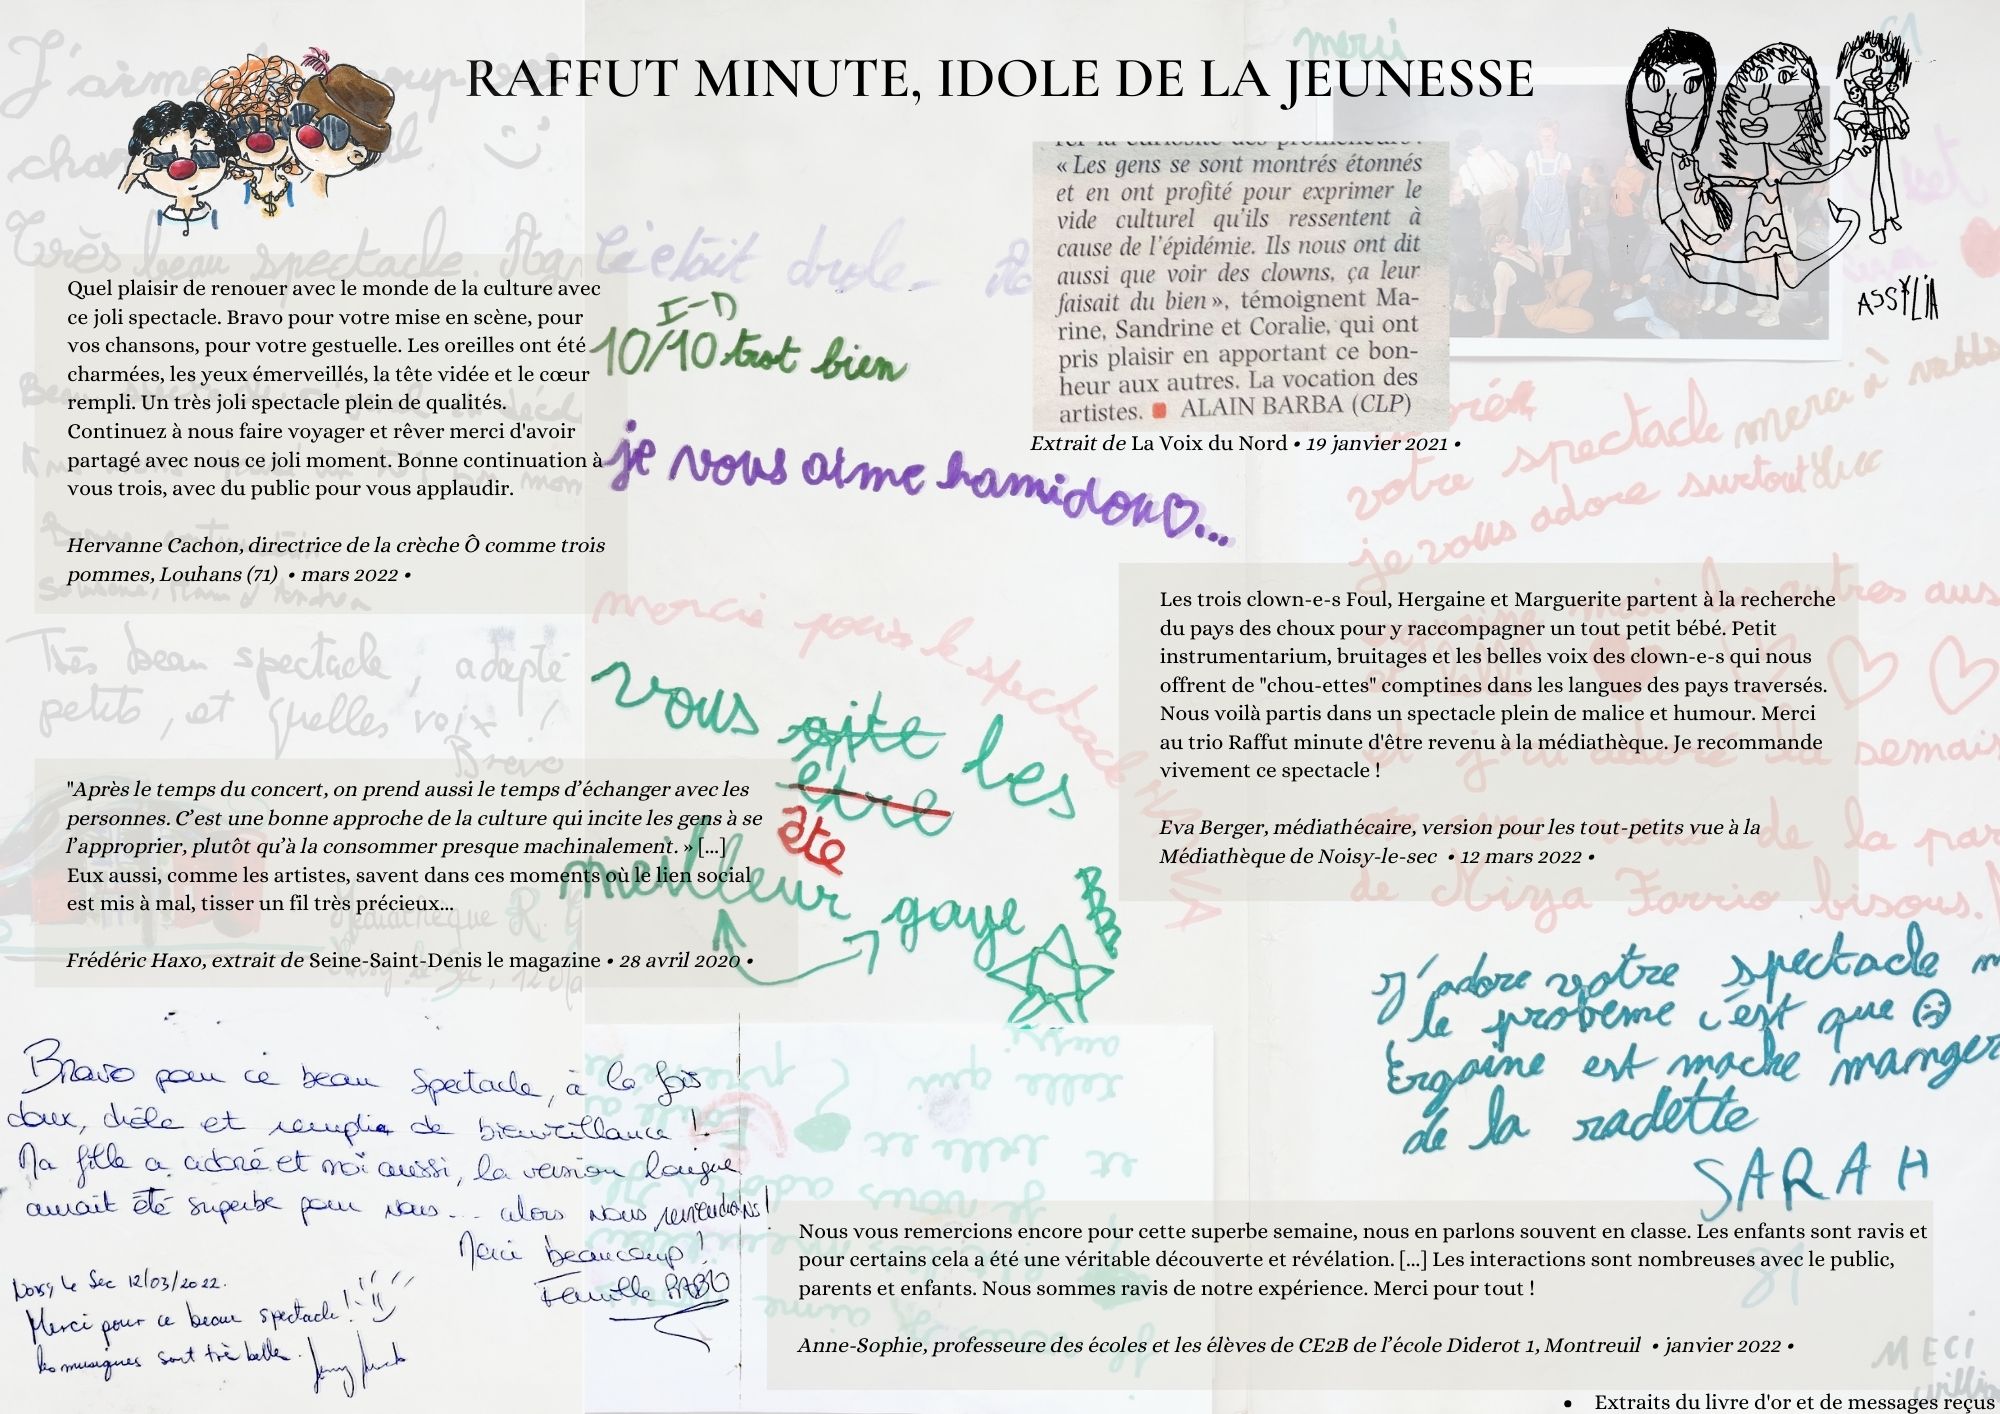 RAFFUT MINUTE, IDOLE DE LA JEUNESSE
merci
Très beau spectacle.
Quel plaisir de renouer avec le monde de la culture avec
ce joli spectacle. Bravo pour votre mise en scène, pour
vos chansons, pour votre gestuelle. Les oreilles ont été
charmées, les yeux émerveillés, la tête vidée et le cœur
rempli. Un très joli spectacle plein de qualités.
Continuez à nous faire voyager et rêver merci d'avoir
partagé avec nous ce joli moment. Bonne continuation à
vous trois, avec du public pour vous applaudir.
Hervanne Cachon, directrice de la crèche Ô comme trois
pommes, Louhans (71) • mars 2022 •
Très beau spectacle, adapté
petits, et quelles voix !
Bravo
"Après le temps du concert, on prend aussi le temps d'échanger avec les
personnes. C'est une bonne approche de la culture qui incite les gens à se
l'approprier, plutôt qu'à la consommer presque machinalement. » [...]
Eux aussi, comme les artistes, savent dans ces moments où le lien social
est mis à mal, tisser un fil très précieux...
Frédéric Haxo, extrait de Seine-Saint-Denis le magazine • 28 avril 2020 •
Bravo pour ce beau spectacle, à la fois
doux, drôle et remplie de bienveillance !
Ma fille a adoré et moi aussi, la version longue
aurait été superbe pour nous... alors nous reviendrons !
Merci beaucoup !
Famille
Noisy le Sec 12/03/2022.
Merci pour ce beau spectacle !
les musiques sont très belle.
c'était drole
10/10 trot bien
je vous aime hamidou ♡...
mercie pour le spectacle
vous
les
ête
meilleur gaye
« Les gens se sont montrés étonnés
et en ont profité pour exprimer le
vide culturel qu'ils ressentent à
cause de l'épidémie. Ils nous ont dit
aussi que voir des clowns, ça leur
faisait du bien », témoignent Ma-
rine, Sandrine et Coralie, qui ont
pris plaisir en apportant ce bon-
heur aux autres. La vocation des
artistes. ■ ALAIN BARBA (CLP)
Extrait de La Voix du Nord • 19 janvier 2021 •
ASSYLIA
votre spectacle merci à
je vous adore surtout
Les trois clown-e-s Foul, Hergaine et Marguerite partent à la recherche
du pays des choux pour y raccompagner un tout petit bébé. Petit
instrumentarium, bruitages et les belles voix des clown-e-s qui nous
offrent de "chou-ettes" comptines dans les langues des pays traversés.
Nous voilà partis dans un spectacle plein de malice et humour. Merci
au trio Raffut minute d'être revenu à la médiathèque. Je recommande
vivement ce spectacle !
Eva Berger, médiathécaire, version pour les tout-petits vue à la
Médiathèque de Noisy-le-sec • 12 mars 2022 •
j'adore votre spectacle m
le probeme c'est que
Ergaine est moche manger
de la radette
SARAH
Nous vous remercions encore pour cette superbe semaine, nous en parlons souvent en classe. Les enfants sont ravis et
pour certains cela a été une véritable découverte et révélation. [...] Les interactions sont nombreuses avec le public,
parents et enfants. Nous sommes ravis de notre expérience. Merci pour tout !
Anne-Sophie, professeure des écoles et les élèves de CE2B de l'école Diderot 1, Montreuil • janvier 2022 •
MECI
• Extraits du livre d'or et de messages reçus